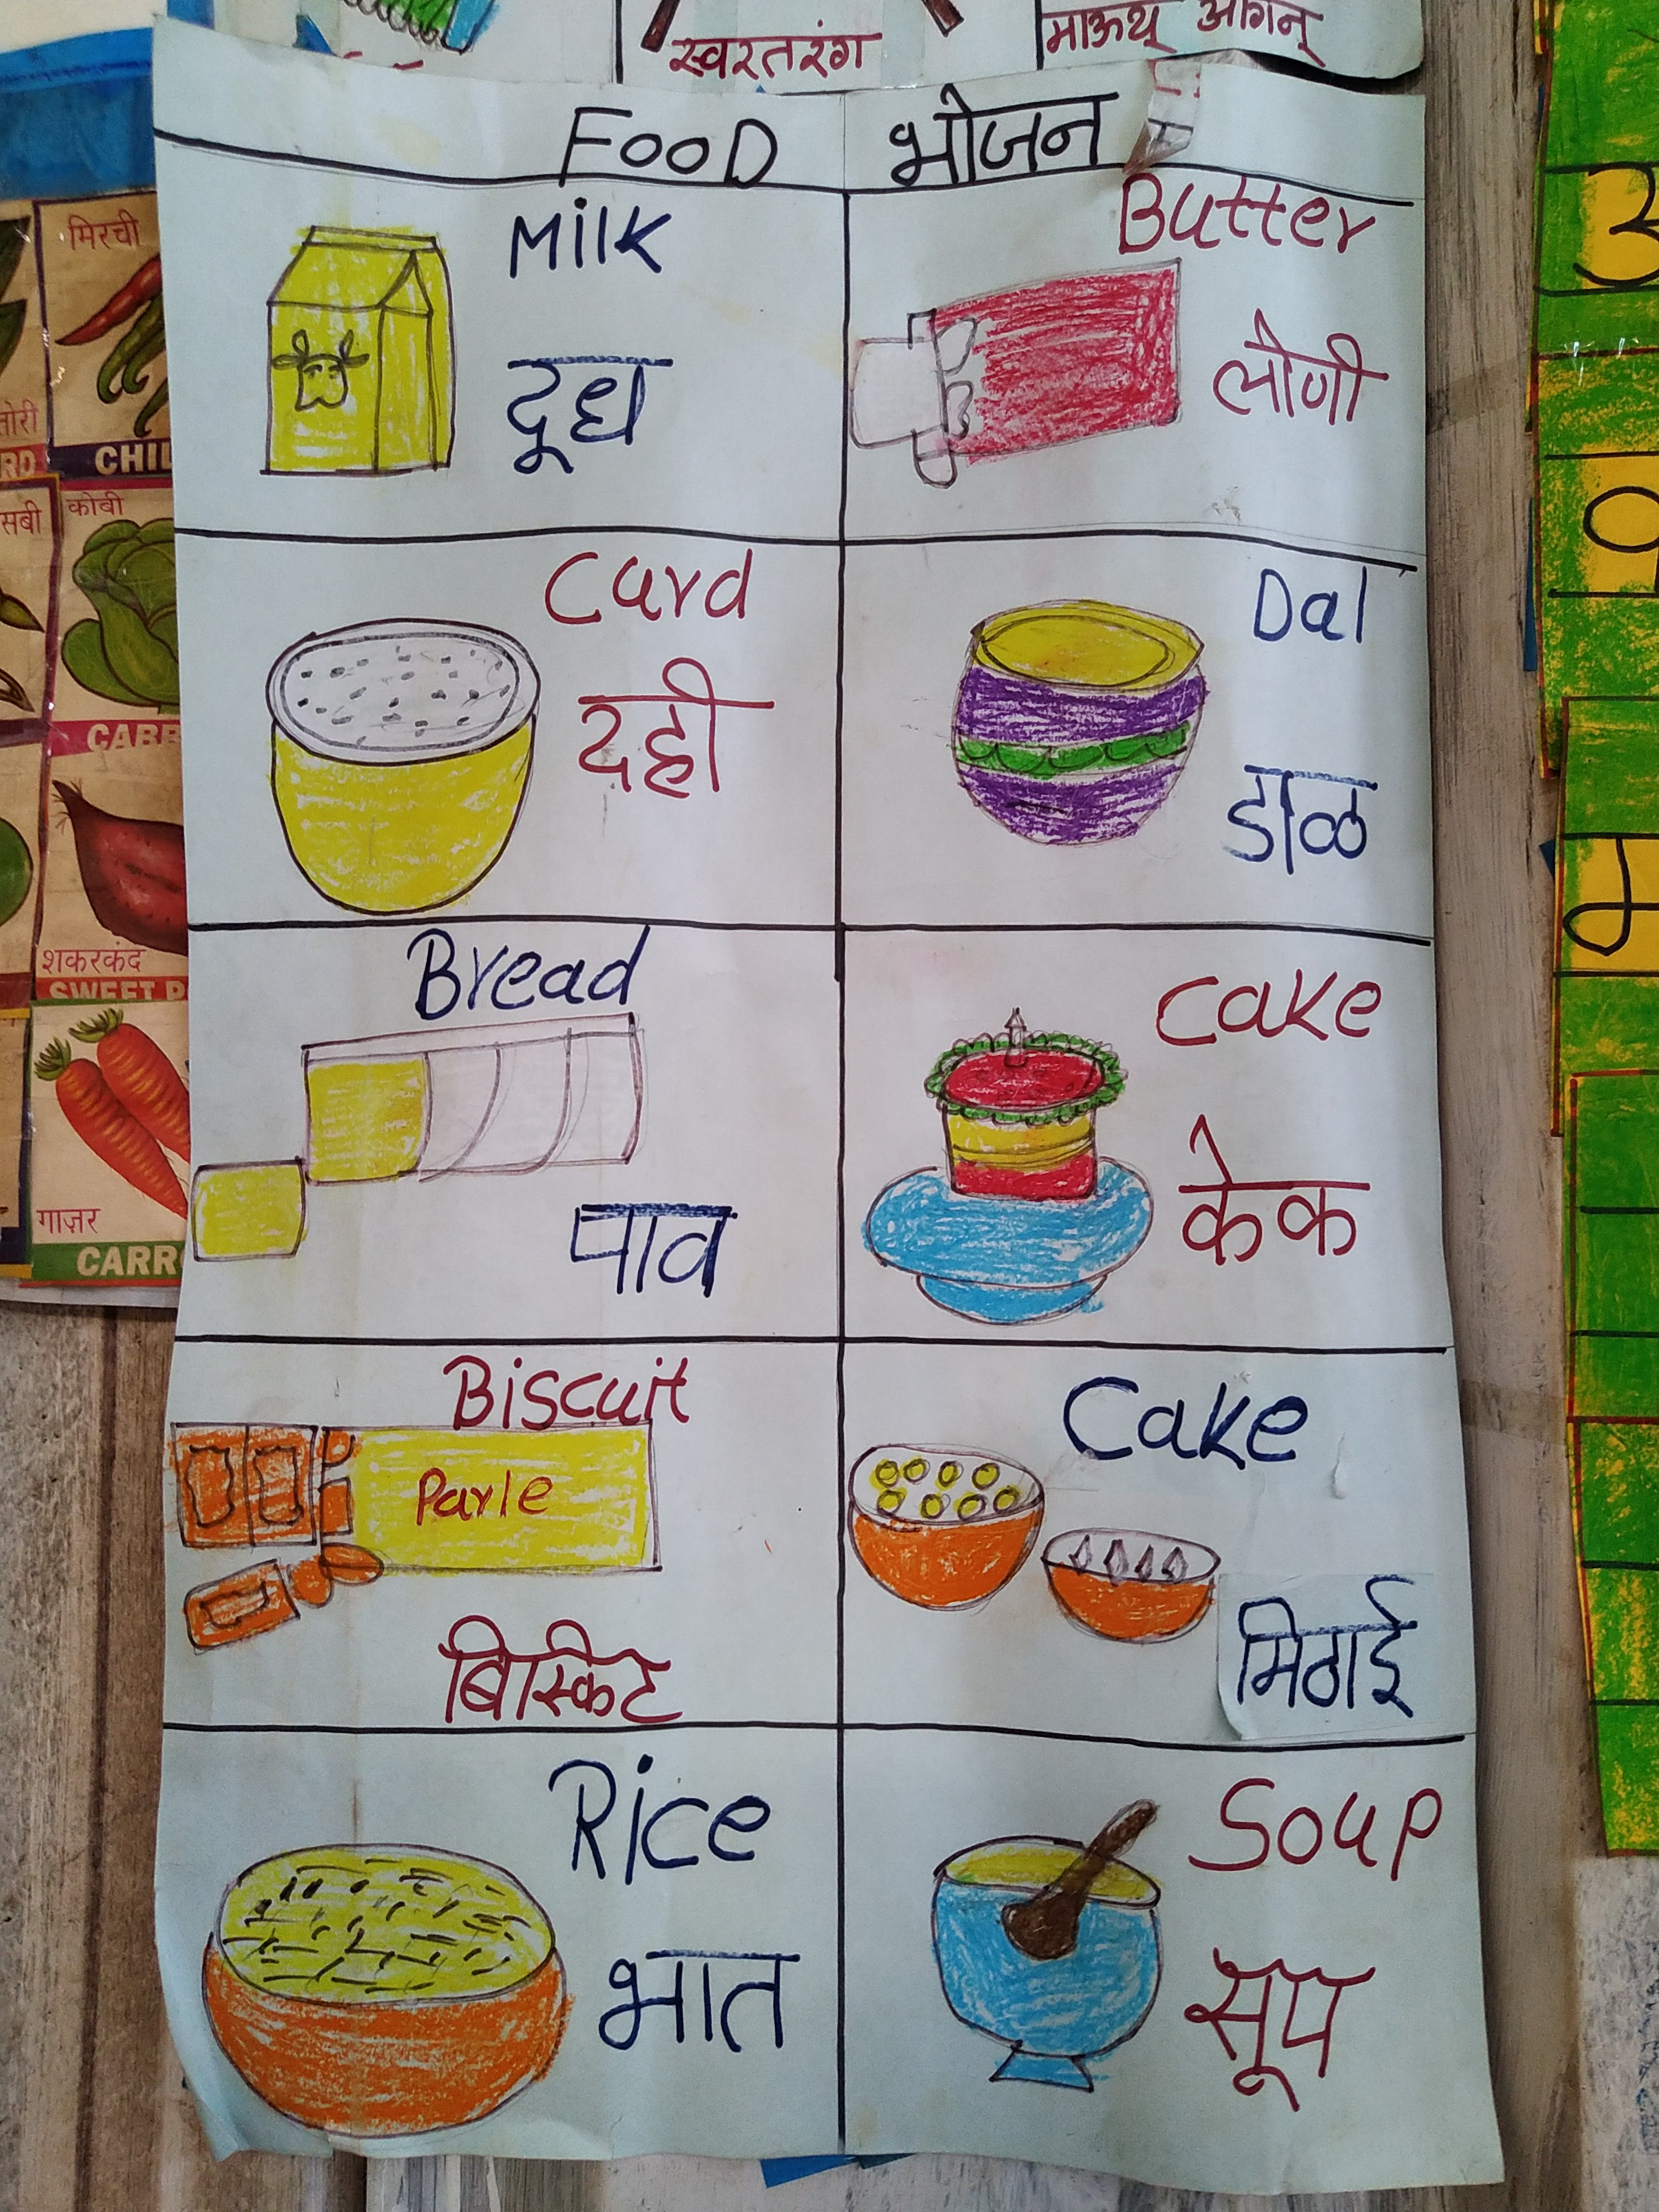 स्वरतरंग
माऊथ् ऑगन्
FOOD भोजन
Milk
दूध
Butter
लोणी
Curd
दही
Dal
डाळ
Bread
पाव
Cake
केक
Biscuit
Parle
बिस्किट
Cake
मिठाई
Rice
भात
Soup
सूप
मिरची
तोरी
RD
CHIL
सबी
कोबी
CABB
शकरकंद
SWEET P
गाज़र
CARR